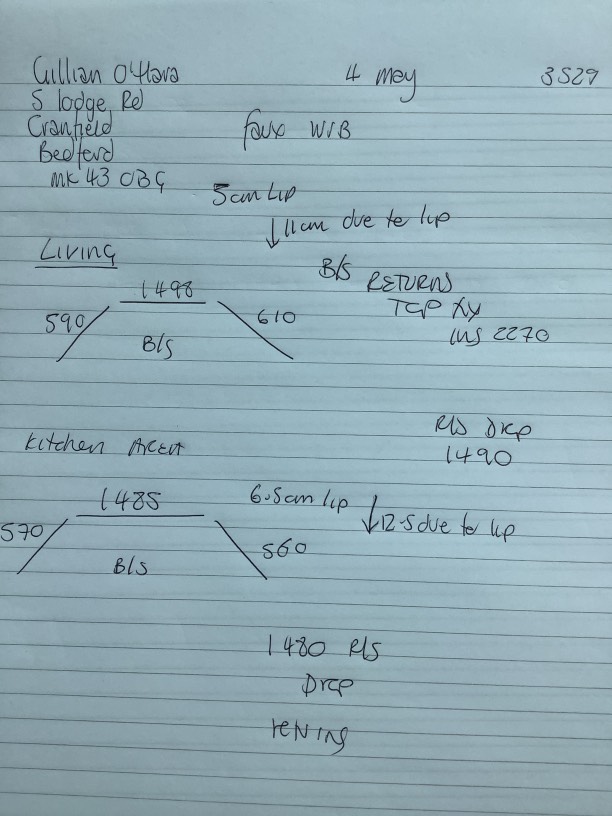 Gillian O'Hara 4 may 3529
5 lodge Rd
Cranfield faux W/B
Bedford
MK43 0BG
5cm Lip
↓ 11cm due to lip
Living
B/S RETURNS
1498
590 610
B/S
INS 2270
R/S Drop
1490
Kitchen Area
1485 6.5cm lip ↓ 12.5 due to lip
570 560
B/S
1480 R/S
Drop